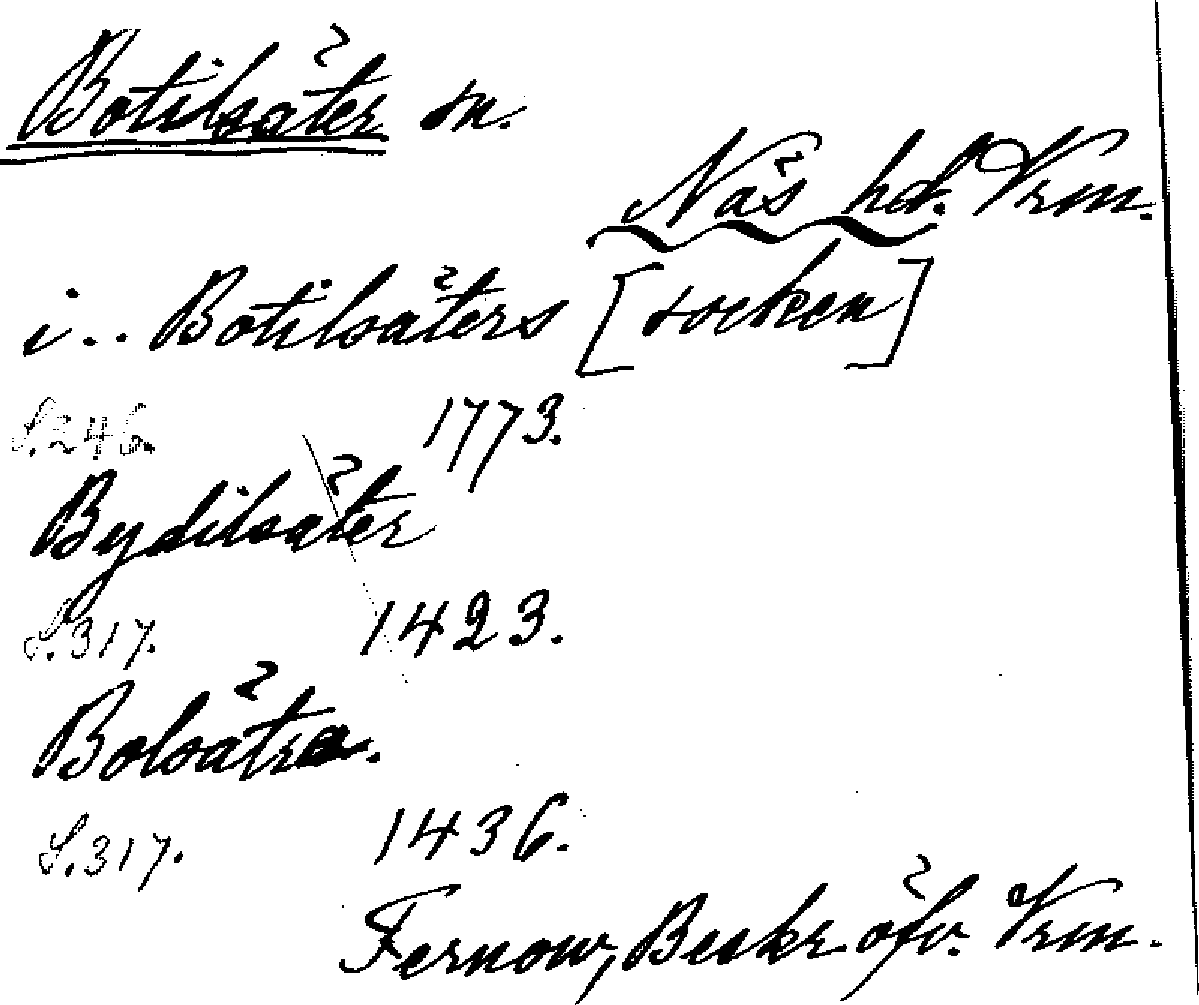 Botilsäter sn.
Näs hd. Vrm.
i.. Botilsäters [socken]
S. 246. 1773.
Bydilsäter
S. 317. 1423.
Bolsätra.
S. 317. 1436.
Fernow, Beskr. öfv. Vrm.